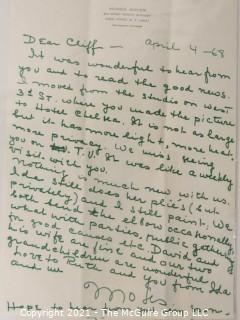 Dear Cliff — April 4 - 68
It was wonderful to hear from
you and to read the good news.
I moved from the studio on West
31 St. where you made the picture
to Hotel Chelsea. It is not as large
but it has more light, more heat,
more privacy. We miss seeing
you on T.V. It was like a weekly
visit with you.
Nothing is much new with us.
Ida still does her pliés (but
privately) and I still paint. We
both bend the elbow occasionally,
what with parties, public gatherings,
for good causes etc. Davis and
his wife are fine and our two
grandchildren are wonderful
love to Ruth and you from Ida
and me
Moses
Hope to hear from
Copyright 2021 - AuctionMonthly.com